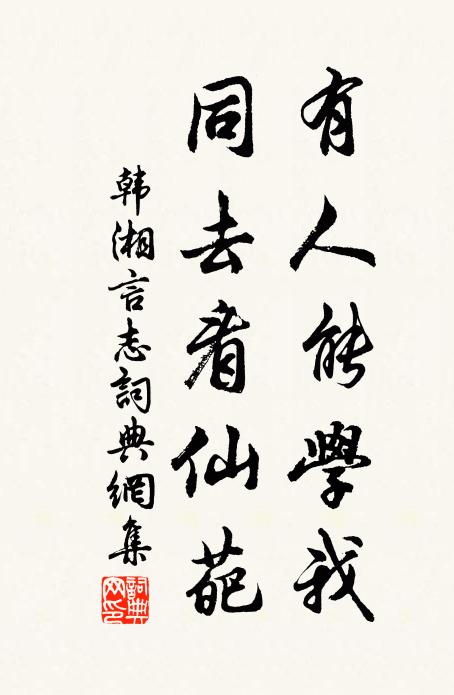 有人能學我
同去看仙葩
韩湘言志詞典網集
詞典网印